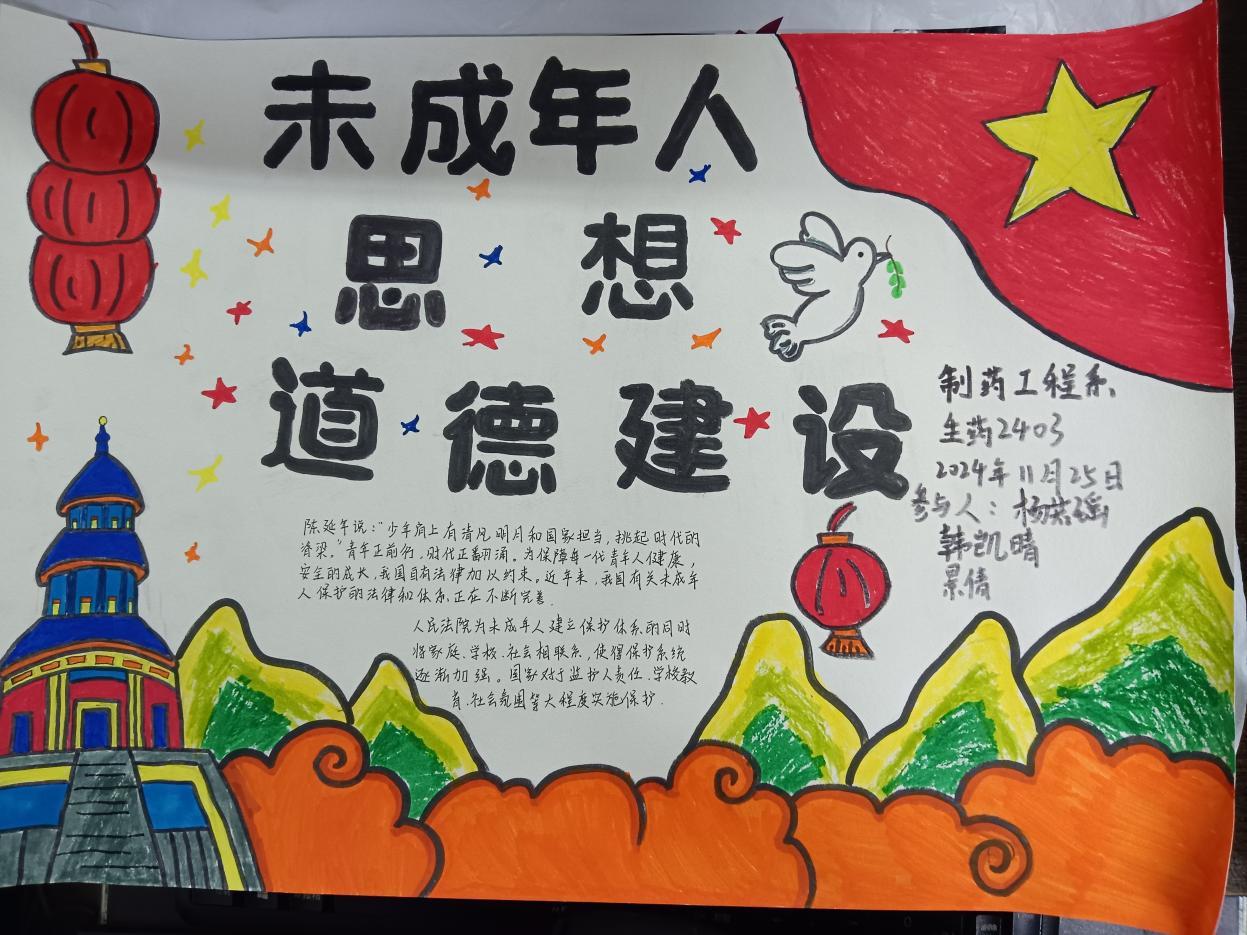 未成年人
思想
道德建设
制药工程系
生药2403
2024年11月25日
参与人：杨洪瑶
韩凯晴
景倩
陈延年说："少年肩上有清风明月和国家担当，挑起时代的
脊梁。"青年正前行，时代正翻涌。为保障每一代青年人健康，
安全的成长，我国自有法律加以约束。近年来，我国有关未成年
人保护的法律和体系正在不断完善
人民法院为未成年人建立保护体系的同时
将家庭、学校、社会相联系，使得保护系统
逐渐加强。国家对于监护人责任、学校教
育、社会氛围等大程度实施保护.